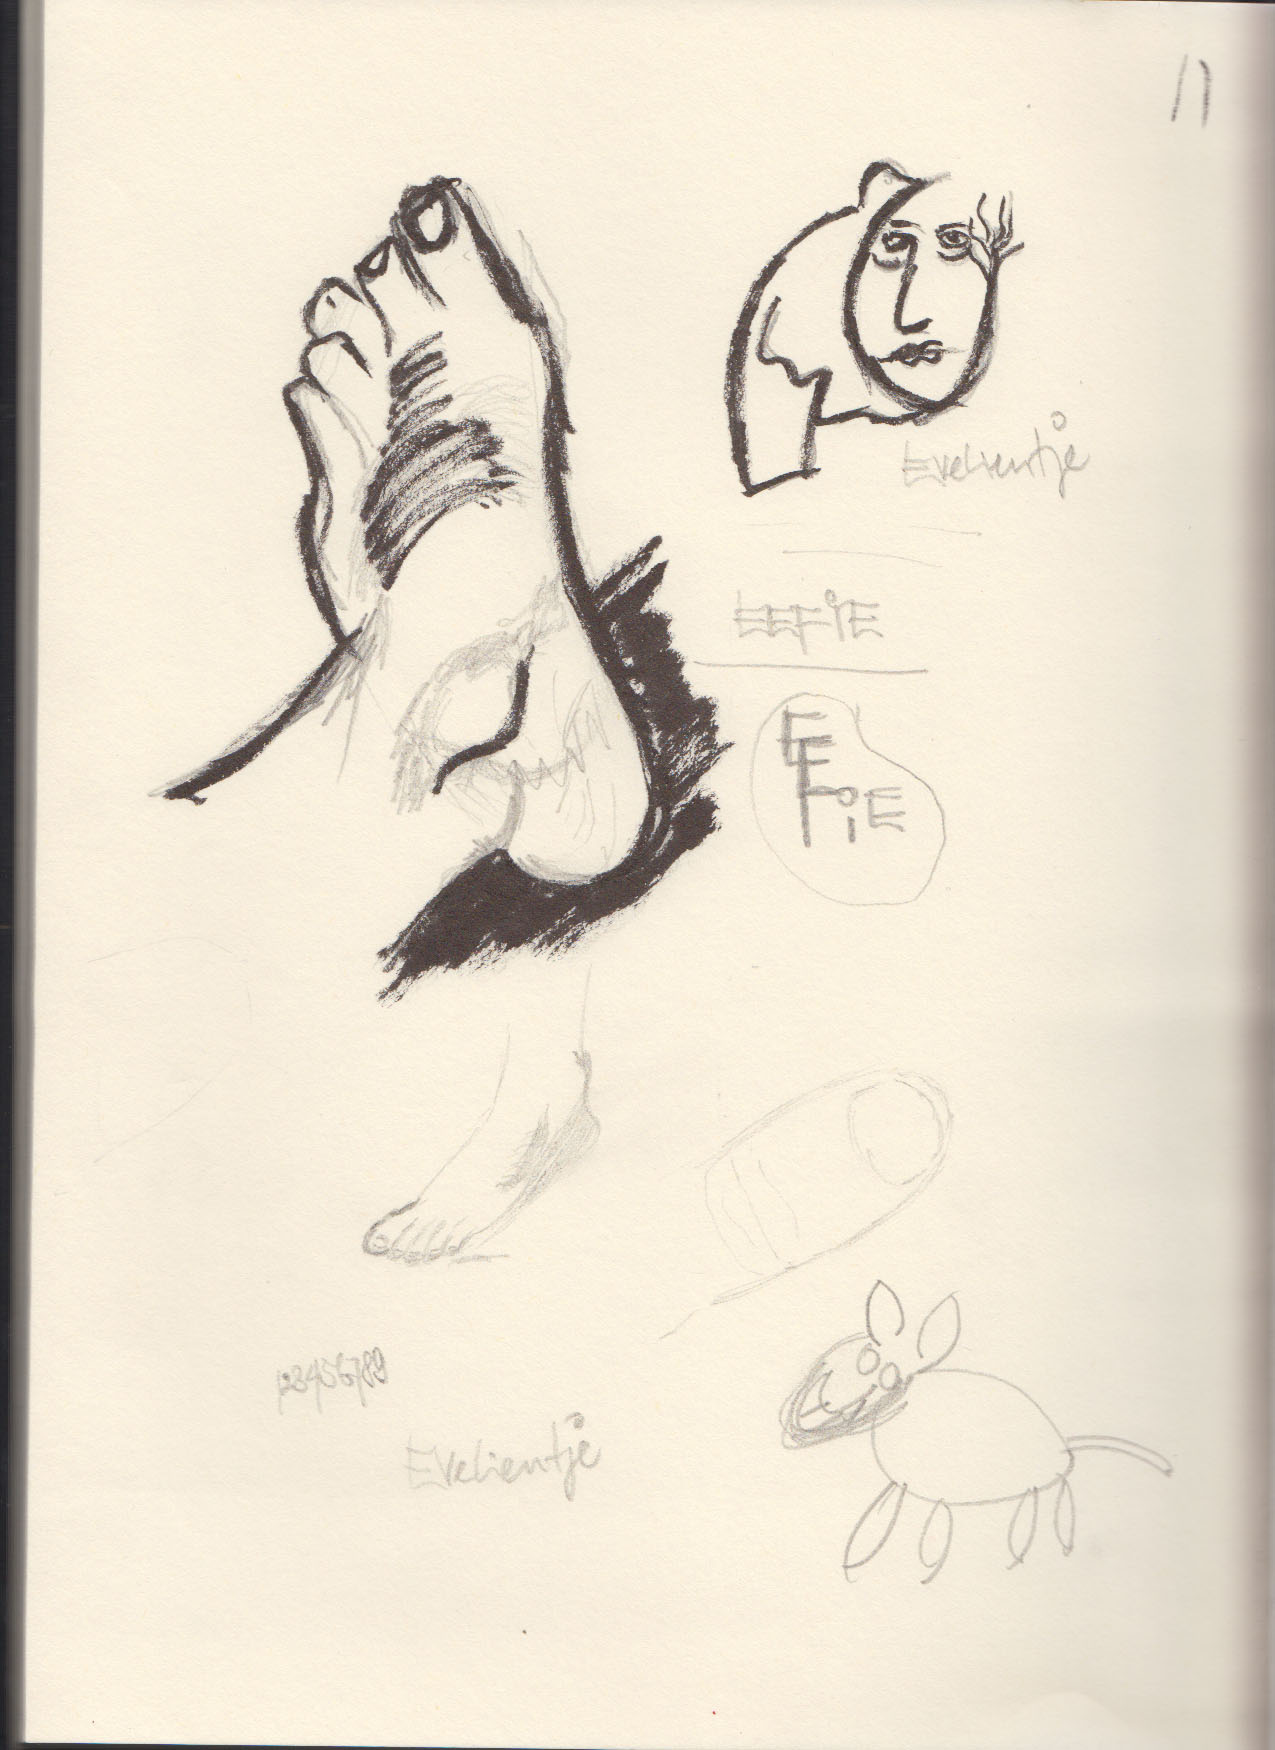 11
Evelientje
EEFiE
EEFiE
123456789
Evelientje